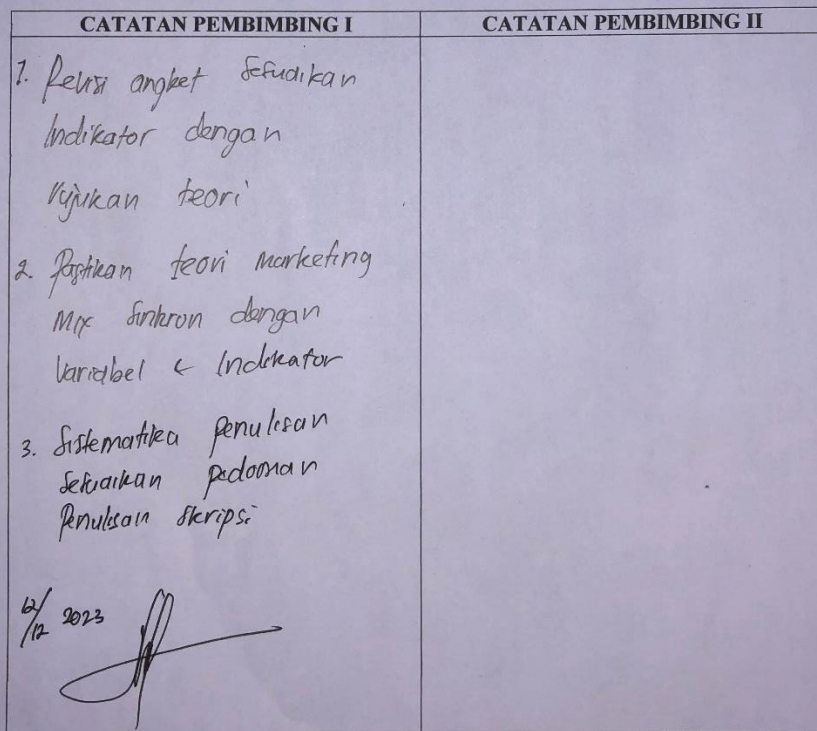 CATATAN PEMBIMBING I
CATATAN PEMBIMBING II
1. Revisi angket Sesuaikan
Indikator dengan
Rujukan teori
2. Pastikan teori marketing
Mix Sinkron dengan
Variabel & Indikator
3. Sistematika Penulisan
Sesuaikan pedoman
Penulisan Skripsi
12/12 2023